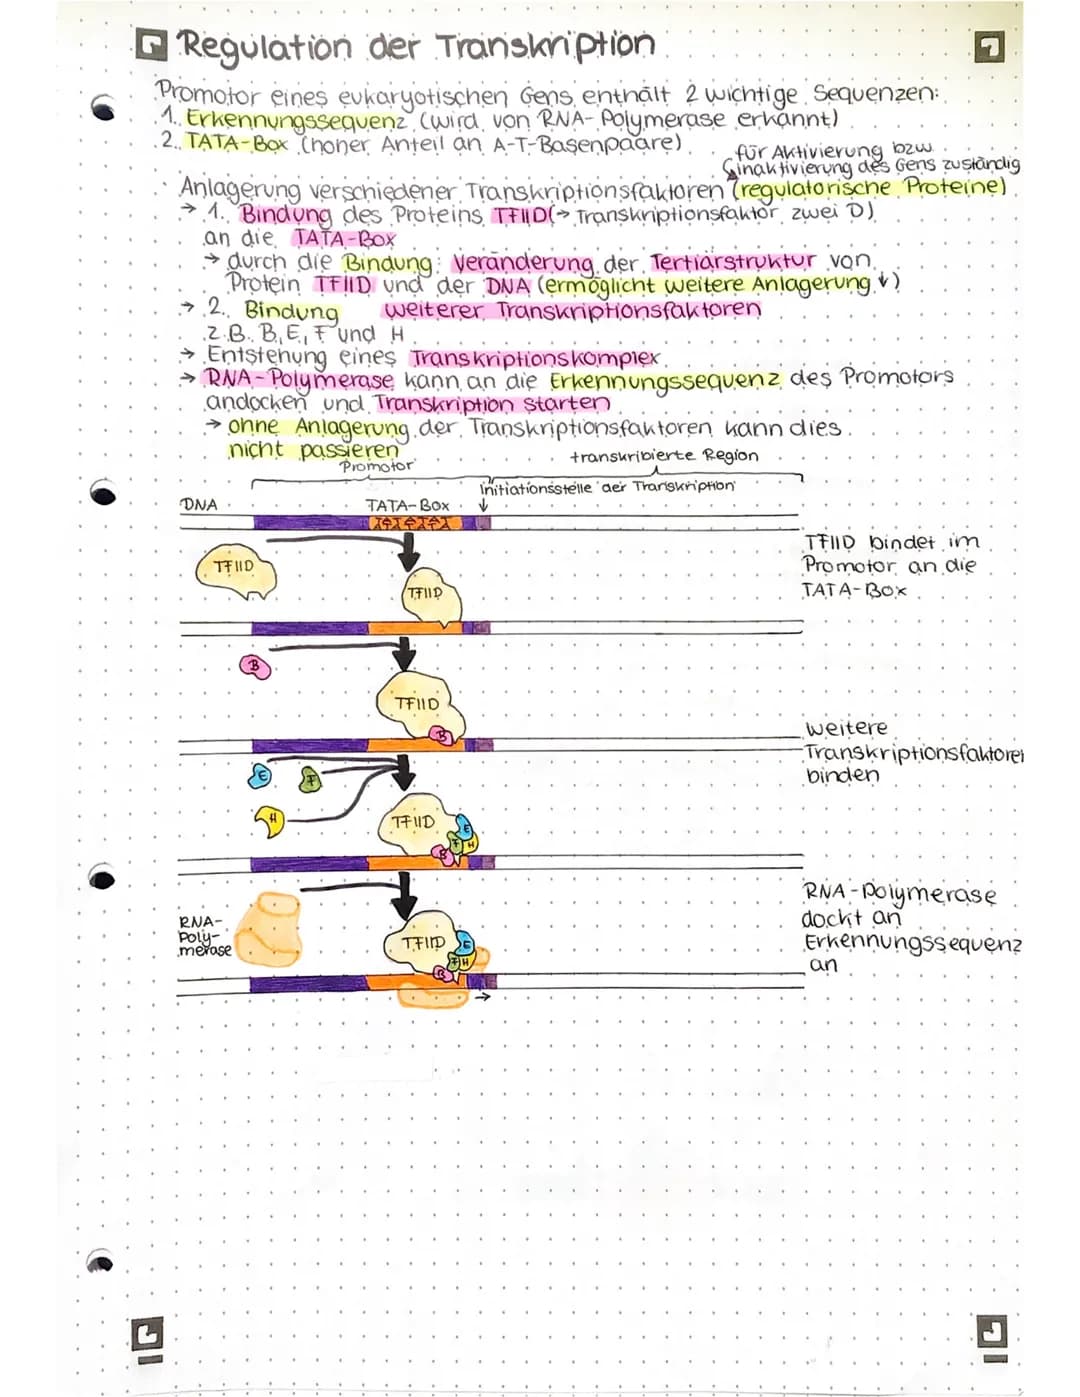 Regulation der Transkription
Promotor eines eukaryotischen Gens enthält 2 wichtige Sequenzen:
1. Erkennungssequenz (wird von RNA-Polymerase erkannt)
2. TATA-Box (hoher Anteil an A-T-Basenpaare)
für Aktivierung bzw.
↳ inaktivierung des Gens zuständig
Anlagerung verschiedener Transkriptionsfaktoren (regulatorische Proteine)
→ 1. Bindung des Proteins TFIID (→ Transkriptionsfaktor zwei D)
an die TATA-Box
→ durch die Bindung: Veränderung der Tertiärstruktur von
Protein TFIID und der DNA (ermöglicht weitere Anlagerung ↓)
→ 2. Bindung weiterer Transkriptionsfaktoren
z.B. B, E, F und H
→ Entstehung eines Transkriptionskomplex
→ RNA-Polymerase kann an die Erkennungssequenz des Promotors
andocken und Transkription starten
→ ohne Anlagerung der Transkriptionsfaktoren kann dies
nicht passieren
Promotor
transkribierte Region
Initiationsstelle der Transkription
DNA
TATA-Box
TATATATA
TFIID
TFIID
TFIID bindet im
Promotor an die
TATA-Box
B
TFIID
B
weitere
Transkriptionsfaktoren
binden
E
F
H
TFIID
E
F
H
B
RNA-
Poly-
merase
TFIID
E
F
H
B
→
RNA-Polymerase
dockt an
Erkennungssequenz
an